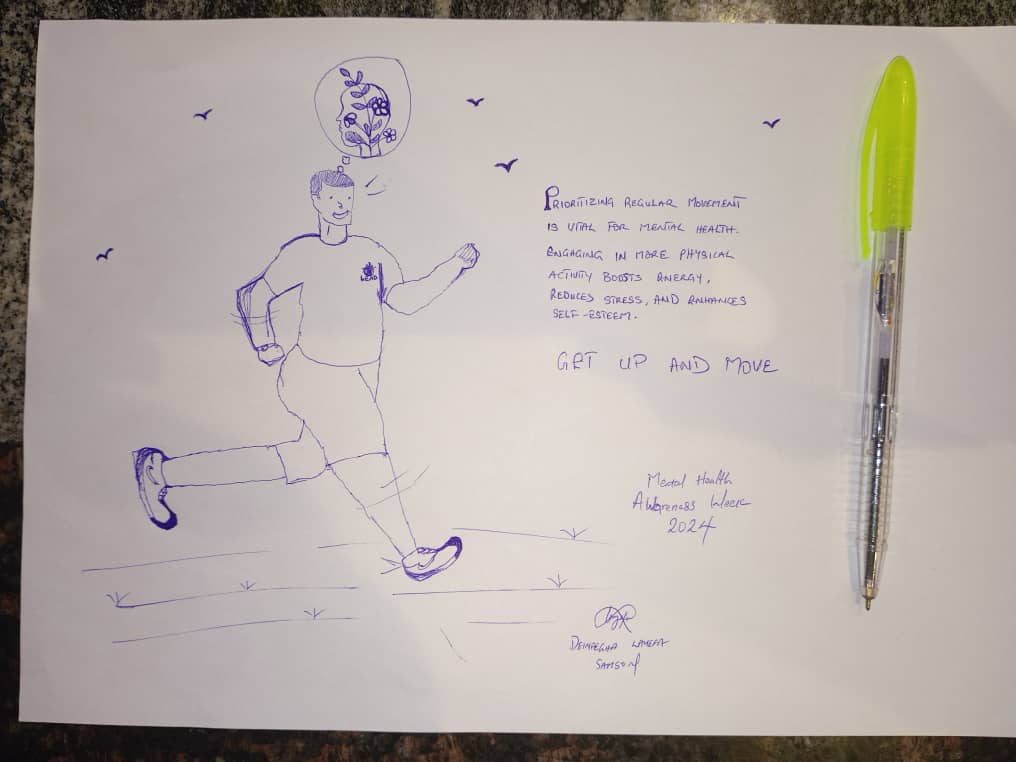 LEAD
PRIORITIZING REGULAR MOVEMENT
IS VITAL FOR MENTAL HEALTH.
ENGAGING IN MORE PHYSICAL
ACTIVITY BOOSTS ENERGY,
REDUCES STRESS, AND ENHANCES
SELF-ESTEEM.
GET UP AND MOVE
Mental Health
Awareness Week
2024
SAMSON